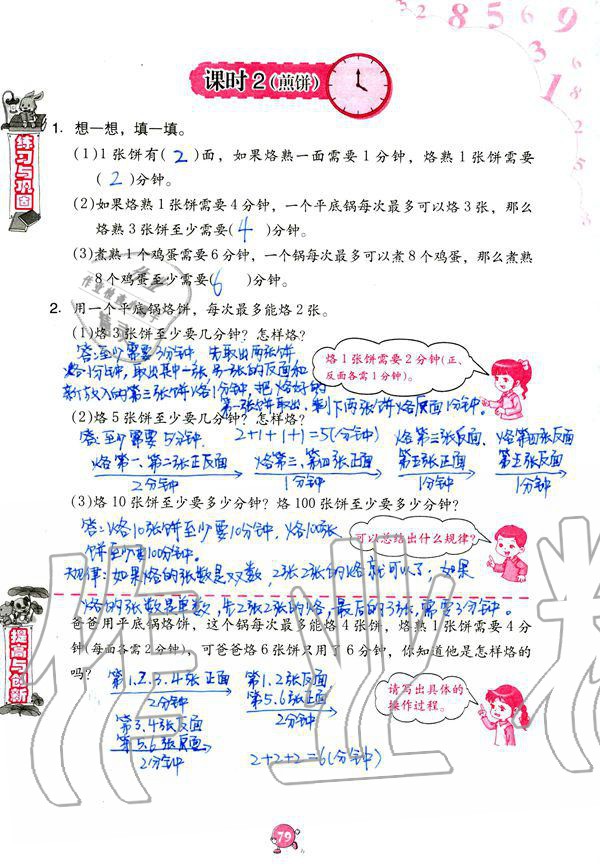 3 2 8 5 6 9
3 1
6
8
2
5
3
课时2(煎饼)
练习与巩固
1. 想一想，填一填。
(1)1张饼有( 2 )面，如果烙熟一面需要1分钟，烙熟1张饼需要
( 2 )分钟。
(2)如果烙熟1张饼需要4分钟，一个平底锅每次最多可以烙3张，那么
烙熟3张饼至少需要( 4 )分钟。
(3)煮熟1个鸡蛋需要6分钟，一个锅每次最多可以煮8个鸡蛋，那么煮熟
8个鸡蛋至少需要( 6 )分钟。
2. 用一个平底锅烙饼，每次最多能烙2张。
(1)烙3张饼至少要几分钟？怎样烙？
答:至少需要3分钟，先取出两张饼
烙1分钟，取出其中一张，另一张的反面和
新放入的第三张饼烙1分钟，把烙好的
第一张饼取出，剩下两张饼烙反面1分钟。
烙1张饼需要2分钟(正、
反面各需1分钟)。
(2)烙5张饼至少要几分钟？怎样烙？
答:至少需要5分钟. 2+1+1+1=5(分钟) 烙第三张反面、 第四张反面、
烙第一、第二张正反面 烙第三、第四张正面 第五张正面 第五张反面
2分钟 1分钟 1分钟 1分钟
(3)烙10张饼至少要多少分钟？烙100张饼至少要多少分钟？
答:烙10张饼至少要10分钟，烙100张
饼至少要100分钟.
可以总结出什么规律？
规律:如果烙的张数是双数，2张2张的烙就可以了；如果
烙的张数是单数，先2张2张的烙，最后的3张，需要3分钟。
提高与创新
爸爸用平底锅烙饼，这个锅每次最多能烙4张饼，烙熟1张饼需要4分钟
(每面各需2分钟)，可爸爸烙6张饼只用了6分钟，你知道他是怎样烙的
吗？
第1.2.3.4张正面 第1.2张反面
第5.6张正面
2分钟 2分钟
第3.4张反面
第5.6张反面
2分钟 2+2+2=6(分钟)
请写出具体的
操作过程。
79
作业精